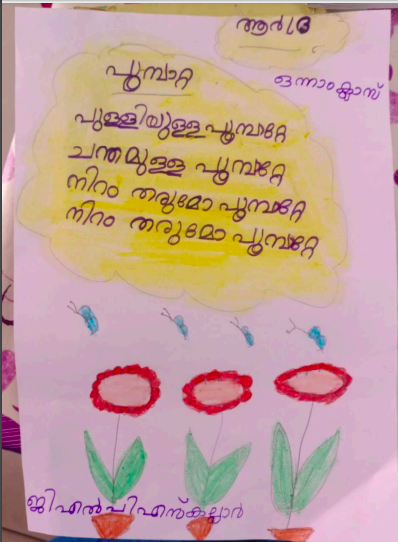 ആർദ്ര
ഒന്നാംക്ലാസ്
പൂമ്പാറ്റ
പുള്ളിയുള്ള പൂമ്പാറ്റേ
ചന്തമുള്ള പൂമ്പാറ്റേ
നിറം തരുമോ പൂമ്പാറ്റേ
നിറം തരുമോ പൂമ്പാറ്റേ
ജിഎൽപിഎസ്കല്ലാർ